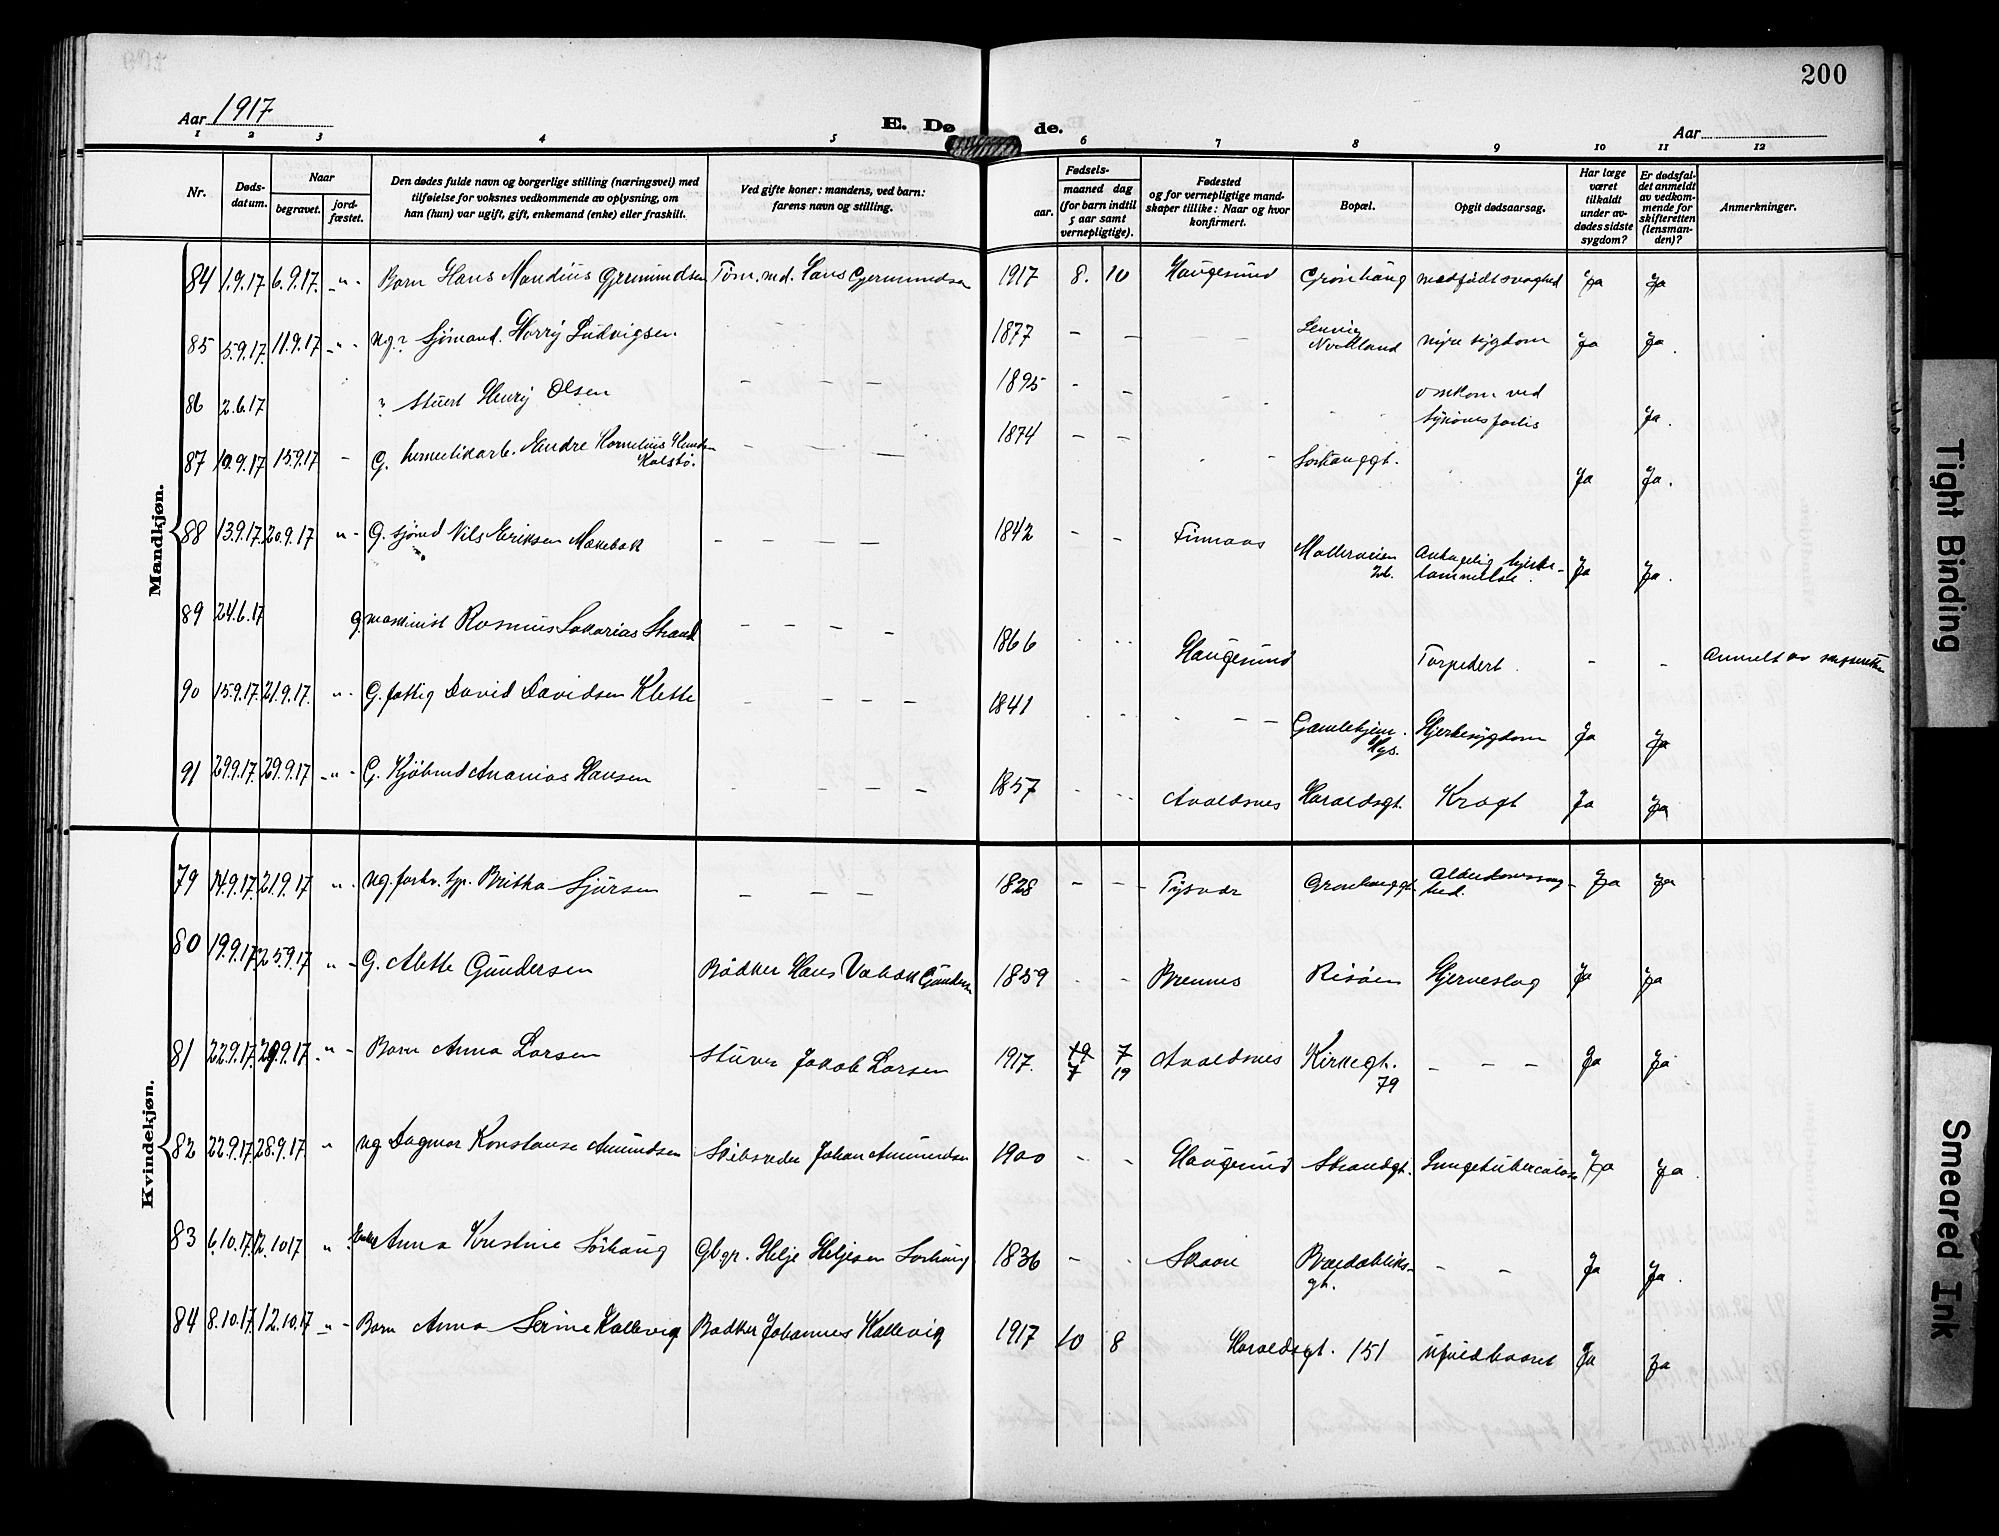 200
Aar 1917
E. Dø de.
Aar
1 2 3 4 5 6 7 8 9 10 11 12
Nr.
Døds-
datum.
Naar
begravet.
jord-
fæstet.
Den dødes fulde navn og borgerlige stilling (næringsvei) med
tilføielse for voksnes vedkommende av oplysning, om
han (hun) var ugift, gift, enkemand (enke) eller fraskilt.
Ved gifte koner: mandens, ved barn:
farens navn og stilling.
Fødsels-
aar.
maaned dag
(for barn indtil
5 aar samt
vernepligtige).
Fødested
og for vernepligtige mand-
skaper tillike: Naar og hvor
konfirmert.
Bopæl.
Opgit dødsaarsag.
Har læge
været
tilkaldt
under av-
dødes sidste
sygdom?
Er dødsfal-
det anmeldt
av vedkom-
mende for
skifteretten
(lensman-
den)?
Anmerkninger.
Mandkjøn.
84 1.9.17 6.9.17. -"- Barn Hans Mandius Gjermundsen Tøm.md. Hans Gjermundsen 1917 8. 10 Haugesund Grønhaug medfødt svaghed Ja Ja
85 5.9.17 11.9.17 -"- ug.? Sjømand. Harry Ludvigsen. 1877 - - - - Lenvig Nordland nyresygdom Ja Ja.
86 2.6.17 ? Stuert Henry Olsen - - - 1895 - - omkom ved Ja.
87 10.9.17 15.9.17 - G. hermetikarb. Kornelius Kolstø. - - - 1874 - - Ja Ja.
88 13.9.17. 20.9.17 "- G. Nils Eriksen - - - - 1842 - - Finnaas Ja Ja.
89 24.6.17 G. maskinist Rasmus Sakarias Strand - - - - 1866 Haugesund Torpedert. - - Anmelt av
90 15.9.17. 21.9.17. "- G. fattig David Davidsen Klette - - - 1841 - - - Gamlehjem. Hgs. Hjertesygdom Ja Ja
91 29.9.17. 29.9.17 -"- G. Ananias Hansen - - - - 1857 Avaldsnes Haraldsgt. Ja Ja
Kvindekjøn.
79 14.9.17. 21.9.17 "- ug. Britha Sjursen - - - 1828 - - - Tysvær Ja Ja
80 19.9.17. 25.9.17 "- G. Alette Gundersen Bødker Hans Gundersen 1859 - - Bremnes Risøen Hjerneslag Ja Ja
81 22.9.17. 29.9.17 "- Barn Anna Larsen Stuver Jakob Larsen 1917. 19 7 7 19 Avaldsnes Kirkegt. 79 - - - Ja Ja
82 22.9.17 28.9.17 " ug Dagmar Konstanse Amundsen Skibsreder Johan Amundsen 1900 - - Haugesund Strandgt. Lungetuberculose Ja Ja
83 6.10.17. 12.10.17 " Enke Anna Kristine Sørhaug Gbgr. Helje Heljesen Sørhaug 1836 - Breidabliks- gt. - - Ja Ja.
84 8.10.17. 12.10.17 "- Barn Anna Serine Kallevig Bødker Johannes Kallevig 1917 10 8 Haraldsgt. 151 ufuldbaaret Ja Ja
Tight Binding
Smeared Ink